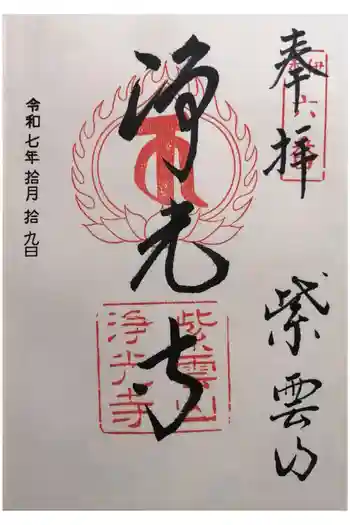 奉拝
紫雲山
浄光寺
紫雲山
浄光寺
令和七年 拾月 拾九日